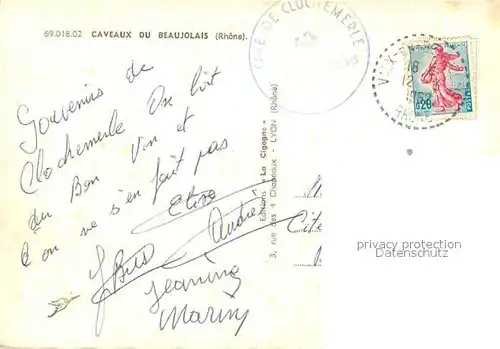 69.018.02 CAVEAUX DU BEAUJOLAIS (Rhône).
DE CLOCHEMERLE
RHÔNE
0,20
Souvenirs de
Clochemerle On boit
du Bon Vin et
on ne s'en fait pas
Elise
André
Jeannine
Marius
Editions "La Cigogne"
3, rue des 4 Chapeaux - LYON (Rhône)
Cite
privacy protection
Datenschutz